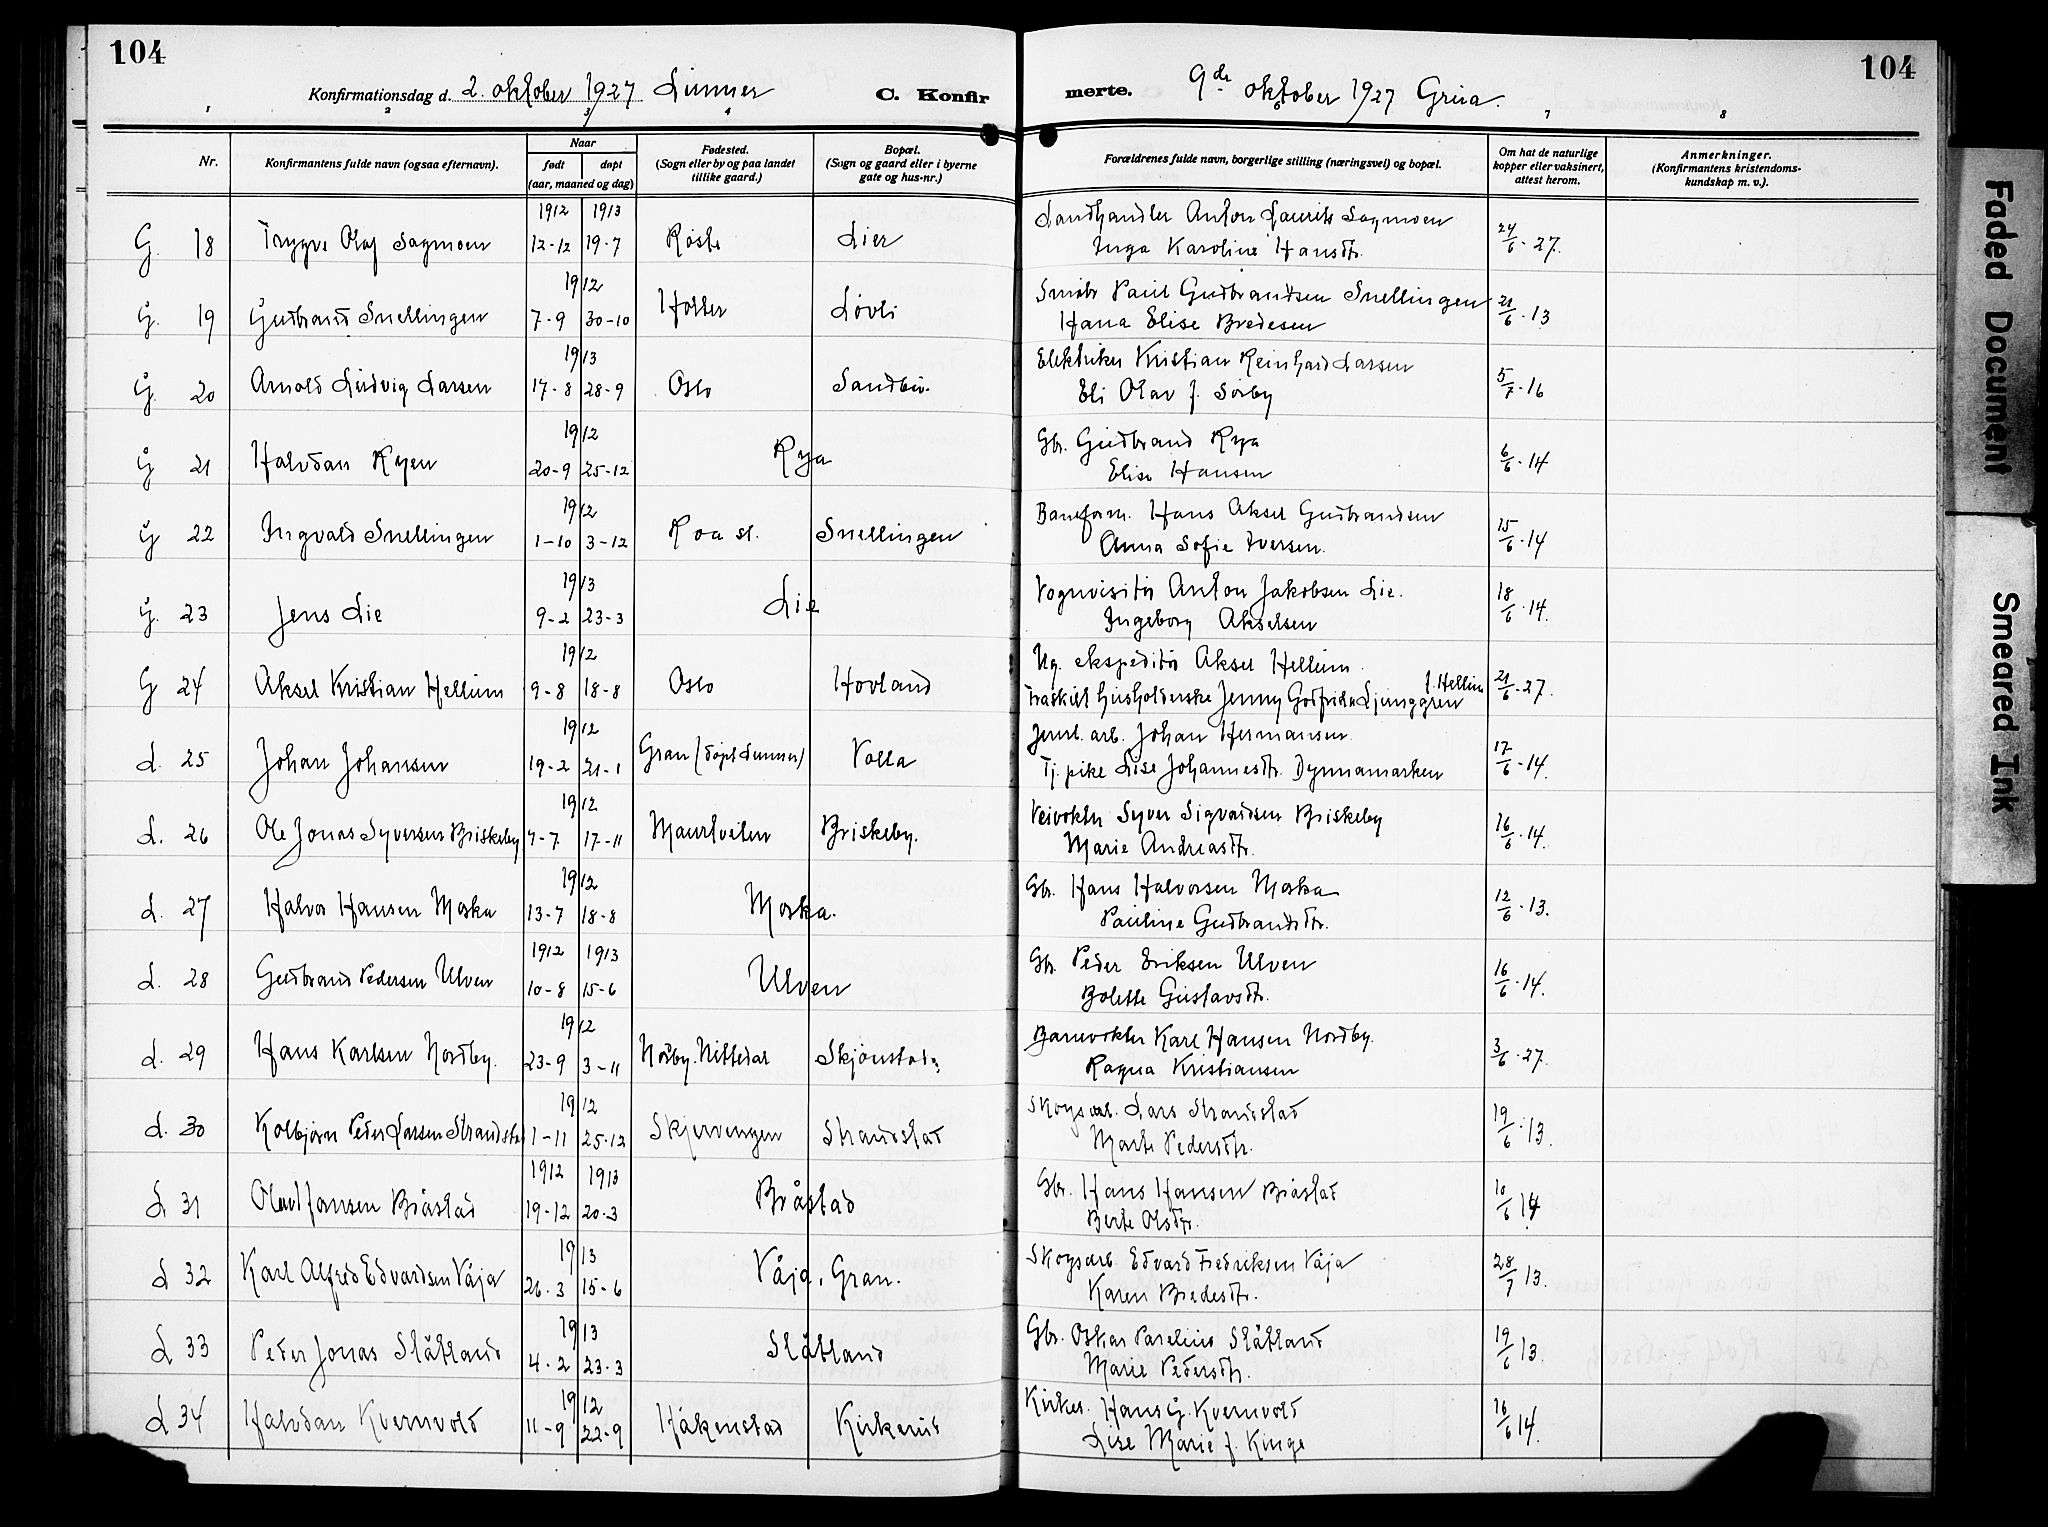 104
Konfirmationsdag d. 2. oktober 1927 Lunner
C. Konfir
merte.
9de oktober 1927 Grua.
104
1 2 3 4 6 7 8
Nr.
Konfirmantens fulde navn (ogsaa efternavn).
Naar
født
døpt
(aar, maaned og dag)
Fødested.
(Sogn eller by og paa landet
tillike gaard.)
Bopæl.
(Sogn og gaard eller i byerne
gate og hus-nr.)
Forældrenes fulde navn, borgerlige stilling (næringsvei) og bopæl.
Om hat de naturlige
kopper eller vaksinert,
attest herom.
Anmerkninger.
(Konfirmantens kristendoms-
kundskap m. v.).
1912 1913 Landhandler Anton Laurits Sagmoen
G. 18 Trygve Olaf Sagmoen 12-12 19-7 Roste Lier Inga Karoline Hansdtr. 24/6-27.
1912 Smibr Paul Gudbrandsen Snellingen
G. 19 Gudbrand Snellingen 7-9 30-10 Holter Løvli Hana Elise Bredesen 21/6-13
1913 Elektriker Kristian Reinhard Larsen
G. 20 Arnold Ludvig Larsen 17-8 28-9 Oslo Sandbu. Eli Olav f. Sørby 5/7-16
1912 Gbr. Gudbrand Rya
G 21 Halvdan Ryen 20-9 25-12 Rya Elise Hansen 6/6-14
1912 Baneform. Hans Aksel Gudbrandsen
G 22 Ingvald Snellingen 1-10 3-12 Roa st. Snellingen Anna Sofie Iversen. 15/6-14
1913 Vognvisitør Anton Jakobsen Lie.
G. 23 Jens Lie 9-2 23-3 Lie Ingeborg Akselsen 18/6-14.
1912 Ug. ekspeditør Aksel Hellum.
G 24 Aksel Kristian Hellum 9-8 18-8 Oslo Hovland fraskilt husholderske Jenny Godfrida Ljunggren f. Hellum 21/6-27.
1912 Jernb. arb. Johan Hermansen.
L. 25 Johan Johansen 19-2 21-1 Gran (døpt Lunner) Volla Tj. pike Lise Johannesdtr. Dynnamarken 17/6-14.
1912 Veivokter Syver Sigvardsen Briskeby
L. 26 Ole Jonas Syversen Briskeby 7-7 17-11 Maurtveten Briskeby. Marie Andreasdtr. 16/6-14.
1912 Gbr. Hans Halvorsen Moska
L. 27 Halvor Hansen Moska 13-7 18-8 Moska. Pauline Gudbrandsdtr. 12/6-13.
1912 1913 Gbr. Peder Eriksen Ulven
L. 28 Gudbrand Pedersen Ulven 10-8 15-6 Ulven Bolette Gustavsdtr. 16/6-14.
1912 Banevokter Karl Hansen Nordby.
L. 29 Hans Karlsen Nordby. 23-9 3-11 Nørby. Nittedal Skjønstad. Ragna Kristiansen 3/6-27.
1912 Skogsarb. Lars Strandstad
L. 30 Kolbjørn Peder Larsen Strandstad 1-11 25-12 Skjervengen Strandstad Marte Pedersdtr. 19/6-13.
1912 1913 Gbr. Hans Hansen Bråstad
L. 31 Olav Hansen Bråstad 19-12 20-3 Bråstad Berte Olsdtr. 10/6 14
1913 Skogsarb. Edvard Fredriksen Våja
L 32 Karl Alfred Edvardsen Våja 26-3 15-6 Våja, Gran. Karen Bredesdtr. 28/7 13.
1913 Gbr. Oskar Paselius Slåtland
L 33 Peder Jonas Slåtland 4-2 23-3 Slåtland Marie Pedersdtr. 19/6 13.
1912 Kirkes. Hans G. Kvernvold
L 34 Halvdan Kvernvold 11-9 22-9 Håkenstad Kirkerud Lise Marie f. Kinge 16/6 14.
Faded Document
Smeared Ink